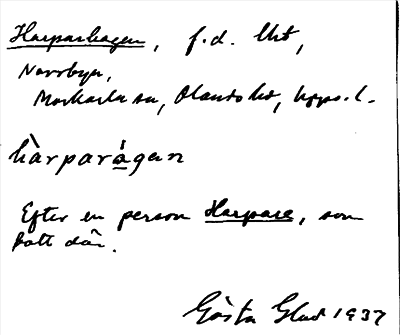 Harparhagen, f.d. lht,
Norrbyn,
Morkarla sn, Olands hd, Upps. l.
hàrparágan
Efter en person Harpare, som
bott där.
Gösta Glad 1937